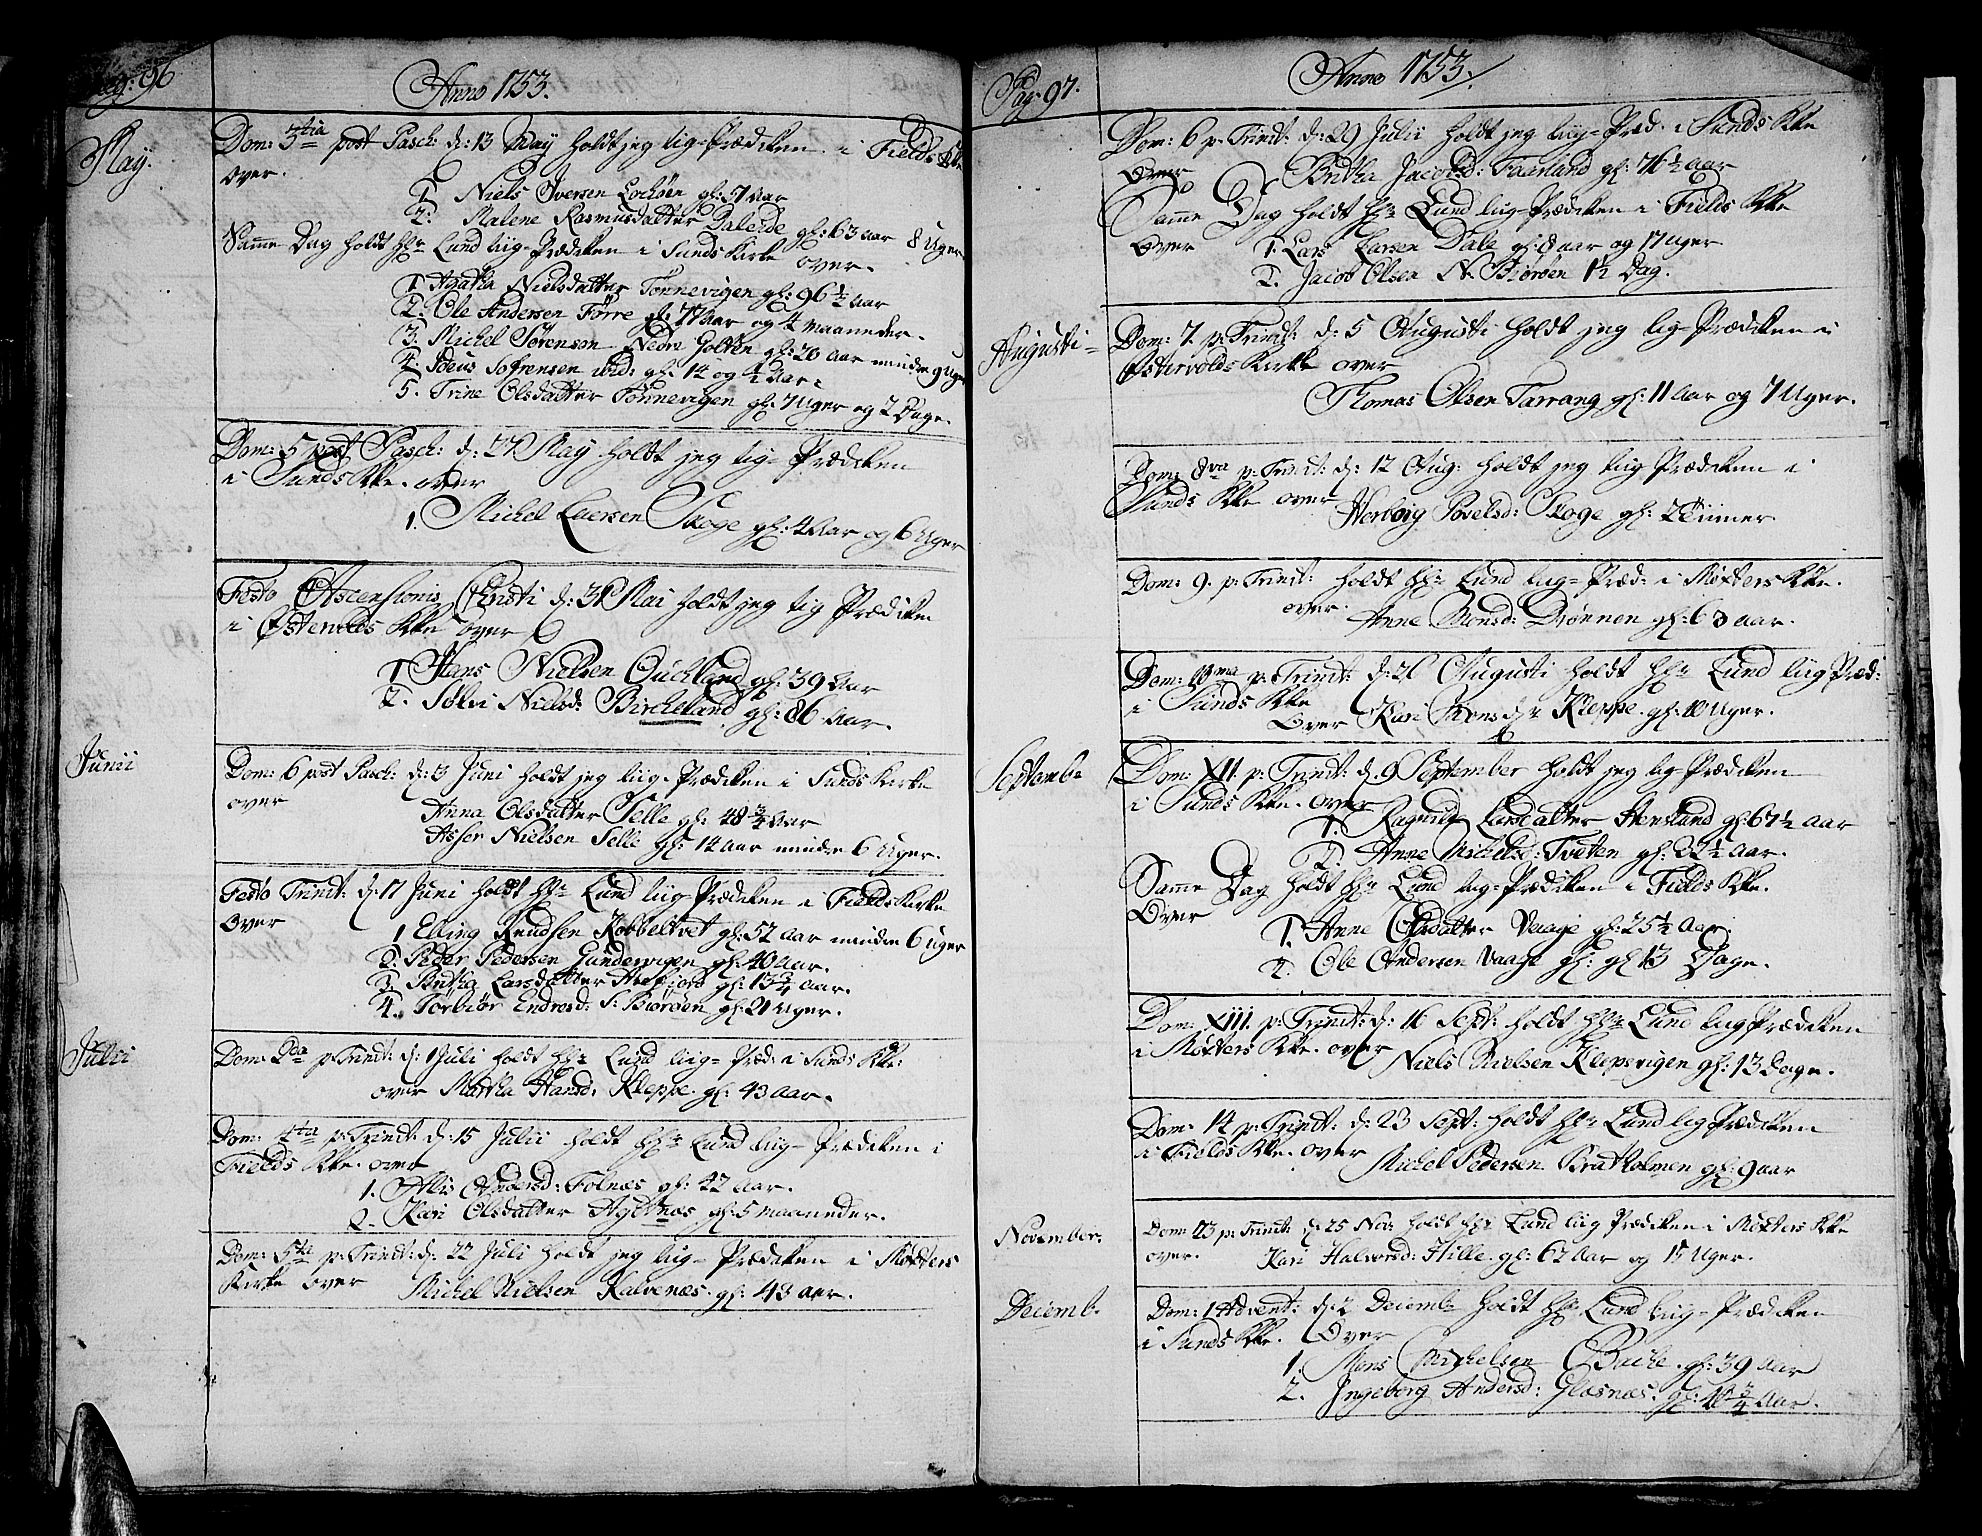 Pag: 96
Anno 1753.
May.
Dom: 3tia post Pasch: d: 13 May holdt jeg Lig-Prædiken i Fields Kke
over.
1. Niels Iversen Lochøen gl: 7 Aar
2. Malene Rasmusdatter Daleide gl: 63 aar 8 Uger
Samme Dag holdt Hr Lund Liig-Prædiken i Sunds Kirke over.
1. Agatha Nielsdatter Tonnevigen gl: 96 ½ Aar
2. Ole Andersen Førre gl: 77 Aar og 4 maaneder.
3. Michel Sørensøn Nedre Golten gl: 20 aar mindre 9 uger
4. Ideus Sofrensen ibid: gl: 14 og ½ Aar:
5. Trine Olsdatter Tonnevigen gl: 7 Uger og 2 Dage.
Dom: 5 post Pasch: d: 27 May holdt jeg Lig-Prædiken
i Sunds Kke. over
1. Michel Larsen Skoge gl: 4 Aar og 6 Uger
Festo Ascensionis Christi d: 31 Mai holdt jeg Lig Prædiken
i Østervolds Kke over
1. Hans Nielsen Quchland gl: 39 Aar
2. Søkri Nielsd: Bircheland gl: 86 Aar.
Junii
Dom: 6 post Pasch: d: 3 Juni holdt jeg Liig-Prædiken i Sunds Kirke
over
Anna Olsdatter Selle gl: 48 ¾ Aar
Asser Nielsen Selle gl: 14 Aar mindre 6 Uger.
Festo Trinit: d: 17 Juni holdt Hr Lund Liig-Prædiken i Fields Kirke
Over
1. Elling Knudsen Kobbeltvet gl: 52 aar mindre 6 uger
2. Peder Pedersen Gundervigen gl: 40 Aar.
3. Britha Larsdatter gl: 13 ¾ Aar.
4. Torbiør Endresd: S: Biorøen gl: 21 Uger.
Julii
Dom: 2da p: Trinit: d: 1 Juli holdt Hr Lund Liig-Præd: i Sunds Kke:
over Martha Hansd: Kleppe gl: 43 Aar.
Dom: 4ta p: Trinit: d: 15 Julii holdt Hr Lund Liig-Prædiken i
Fields Kke. over
1. Alis Andersd: Folnæs gl: 42 Aar.
2. Kari Olsdatter Ageltnæs gl: 5 maaneder.
Dom: 5ta p: Trinit: d: 22 Juli holdt jeg Liig-Prædiken i Møxters
Kirke over Michel Nielsen Kalvenæs gl: 43 aar.
Pag: 97.
Anno 1753.
Dom: 6 p: Trinit: d: 29 Julii holdt jeg Liig-Præd: i Sunds Kke
over Britha Jacobsd: Faarland gl: 76 ½ Aar
Samme Dag holdt Hr Lund Liig-Prædiken i Fields Kke
Over 1. Lars Larsen Dale gl: 8 aar og 17 Uger
2. Jacob Olsen N. Biørøen 1½ Dag.
Augusti
Dom: 7 p: Trinit: d: 5 Augusti holdt jeg Lig-Prædiken i
Østervolds Kirke over
Thomas Olsen Tarrang gl: 11 Aar og 7 Uger.
Dom: 8va p: Trinit: d: 12 Aug: holdt jeg Liig Prædiken i
Sunds Kke over Herborg Povelsd: Skoge gl: 2 Tiimer
Dom: 9. p: Trinit: holdt Hr Lund Liig-Præd: i Møxters Kke.
over. Anne Monsd: Drønnen gl: 63 aar.
Dom: 10ma p: Trinit: d: 26 Augusti holdt Hr Lund Liig Præd:
i Sunds Kke
Over Kari Monsdr Kleppe gl: 10 Uger.
Septemb:
Dom: XII. p: Trinit: d: 9 September holdt jeg Lig-Prædiken
i Sunds Kke. over
1. Ragnild Larsdatter Henslund gl: 67 ½ Aar
2. Anne Michelsd: Tveten gl: 22 ½ Aar.
Samme Dag holdt Hr Lund Liig-Prædiken i Fields Kke.
Over
1. Anne Olsdatter Vaage gl: 25 ½ Aar.
2. Ole Andersen Vaage gl: gl 13 Dage.
Dom: XIII. p: Trinit: d: 16 Sept: holdt Hr Lund Liig Prædiken
i Møxters Kke. over Niels Nielsen Klepsvigen gl: 13 Dage.
Dom: 14 p: Trinit: d: 23 Sept: holdt Hr Lund Lig Prædiken
i Fields Kke. over Michel Pedersen Bratholmen gl: 9 aar
November.
Dom: 23 p: Trinit: d: 25 Nov: holdt Hr Lund Liig Prædiken i Møxters Kke
over. Kari Halvorsd: Hille gl: 62 Aar og 15 Uger.
Decemb.
Dom: 1 Advent: d: 2 Decemb: holdt Hr Lund Liig-Prædiken
i Sunds Kke. Over
1. Mons Michelsen Bache gl: 39 Aar
2. Ingeborg Andersd: Glesnæs gl: 10 ¾ Aar.